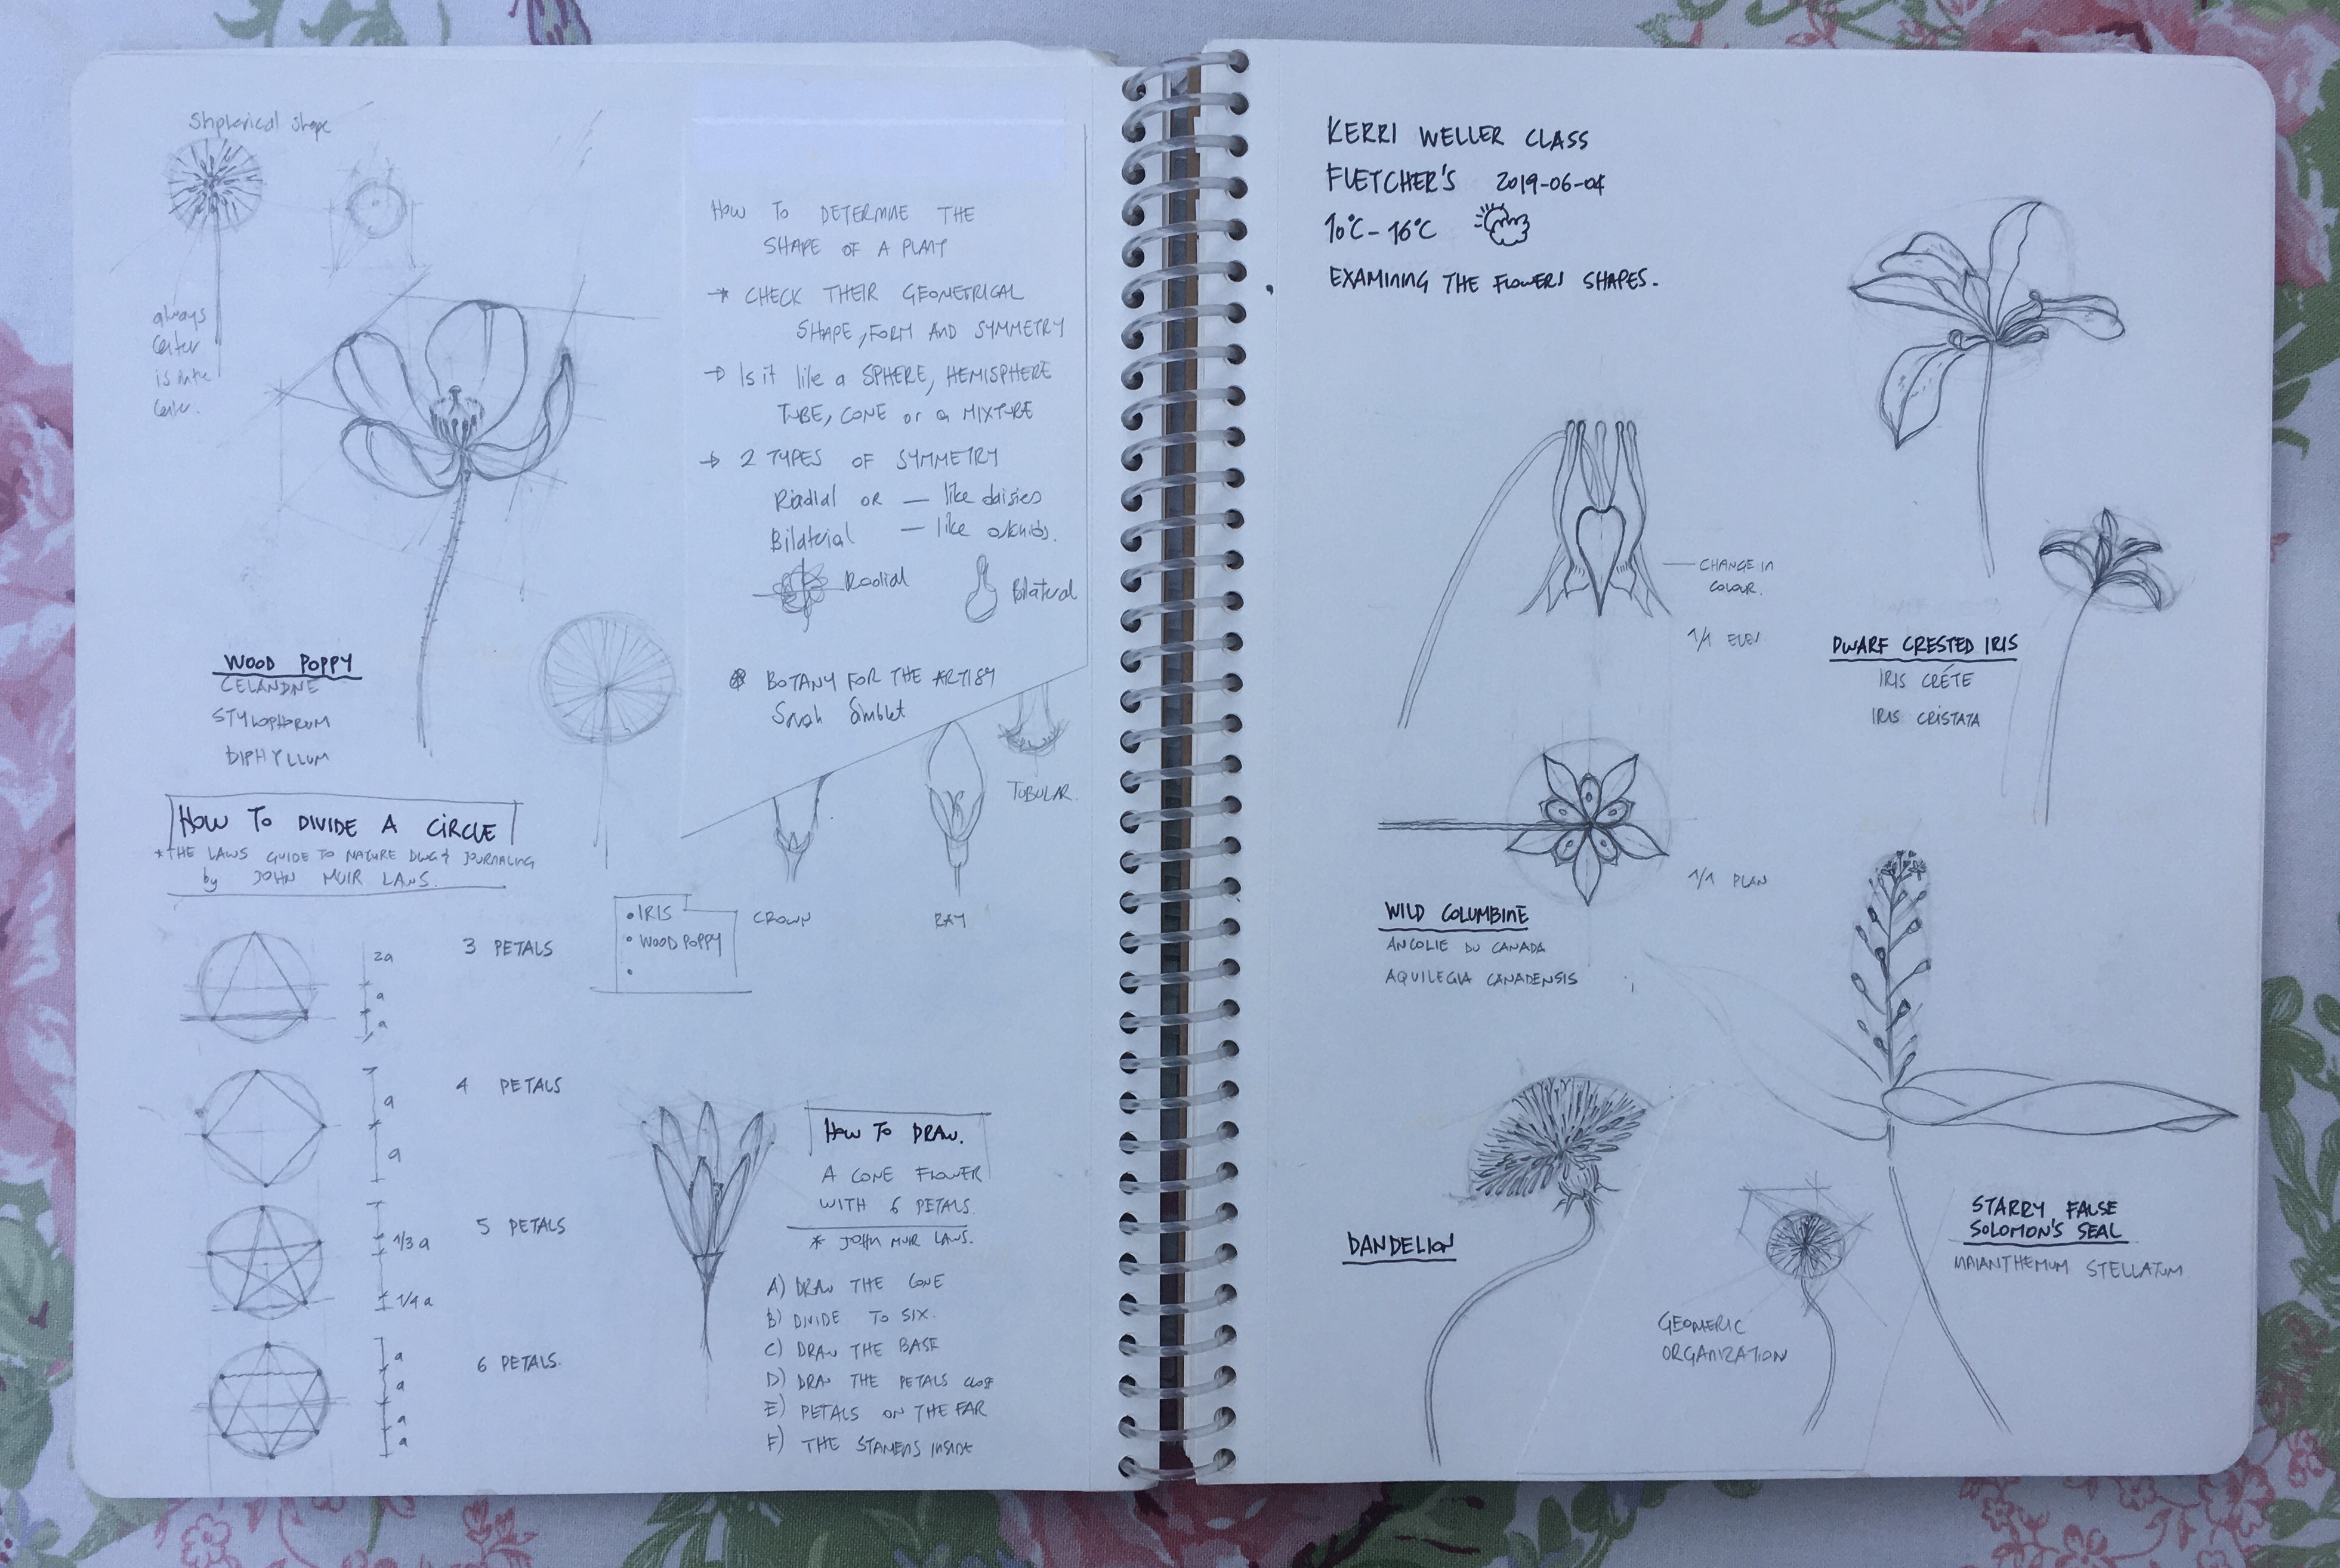 Shpherical shape
always
center
is into
center.
WOOD POPPY
CELANDINE
STYLOPHORUM
DIPHYLLUM
HOW TO DETERMINE THE
SHAPE OF A PLANT
→ CHECK THEIR GEOMETRICAL
SHAPE, FORM AND SYMMETRY
→ Is it like a SPHERE, HEMISPHERE
TUBE, CONE or a MIXTURE
→ 2 TYPES OF SYMMETRY
Riadial OR — like daisies
Bilaterial — like orkhids.
Radial
Bilateral
BOTANY FOR THE ARTIST
Sarah Simblet
TUBULAR
CROWN
RAY
HOW TO DIVIDE A CIRCLE
*THE LAWS GUIDE TO NATURE DWG & JOURNALING
by JOHN MUIR LAWS.
• IRIS
• WOOD POPPY
•
3 PETALS
2a
a
a
4 PETALS
a
a
5 PETALS
1/3 a
1/4 a
6 PETALS.
a
a
a
a
HOW TO DRAW.
A CONE FLOWER
WITH 6 PETALS.
* JOHN MUIR LAWS.
A) DRAW THE CONE
B) DIVIDE TO SIX.
C) DRAW THE BASE
D) DRAW THE PETALS CLOSE
E) PETALS ON THE FAR
F) THE STAMENS INSIDE
KERRI WELLER CLASS
FLETCHER'S 2019-06-04
10°C - 16°C
EXAMINING THE FLOWERS SHAPES.
CHANGE IN
COLOUR.
1/1 ELEV
DWARF CRESTED IRIS
IRIS CRÉTE
IRIS CRISTATA
1/1 PLAN
WILD COLUMBINE
ANCOLIE DU CANADA
AQUILEGIA CANADENSIS
DANDELION
GEOMERIC
ORGANIZATION
STARRY FALSE
SOLOMON'S SEAL
MAIANTHEMUM STELLATUM